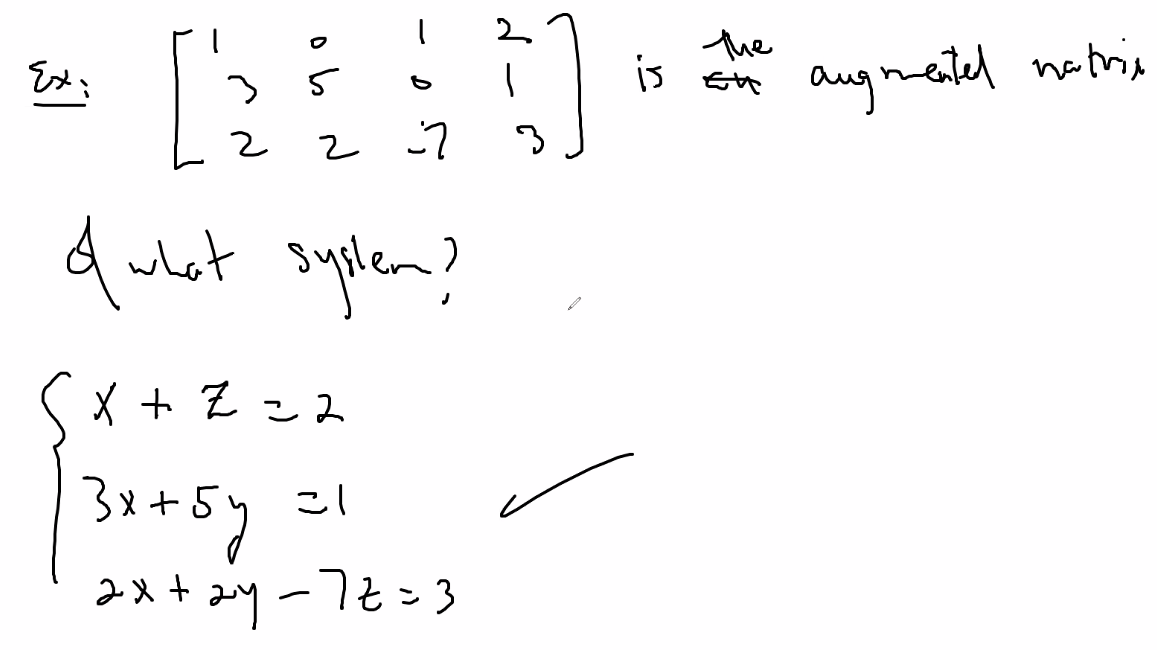 Ex: [1 0 1 2
3 5 0 1
2 2 -7 3] is the augmented matrix
of what system?
{ x + z = 2
3x + 5y = 1
2x + 2y - 7z = 3